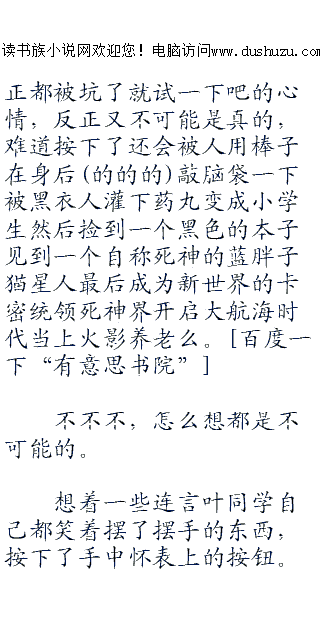 读书族小说网欢迎您！电脑访问www.dushuzu.com
正都被坑了就试一下吧的心
情，反正又不可能是真的，
难道按下了还会被人用棒子
在身后(的的的)敲脑袋一下
被黑衣人灌下药丸变成小学
生然后捡到一个黑色的本子
见到一个自称死神的蓝胖子
猫星人最后成为新世界的卡
密统领死神界开启大航海时
代当上火影养老么。[百度一
下“有意思书院”]
不不不，怎么想都是不
可能的。
想着一些连言叶同学自
己都笑着摆了摆手的东西，
按下了手中怀表上的按钮。